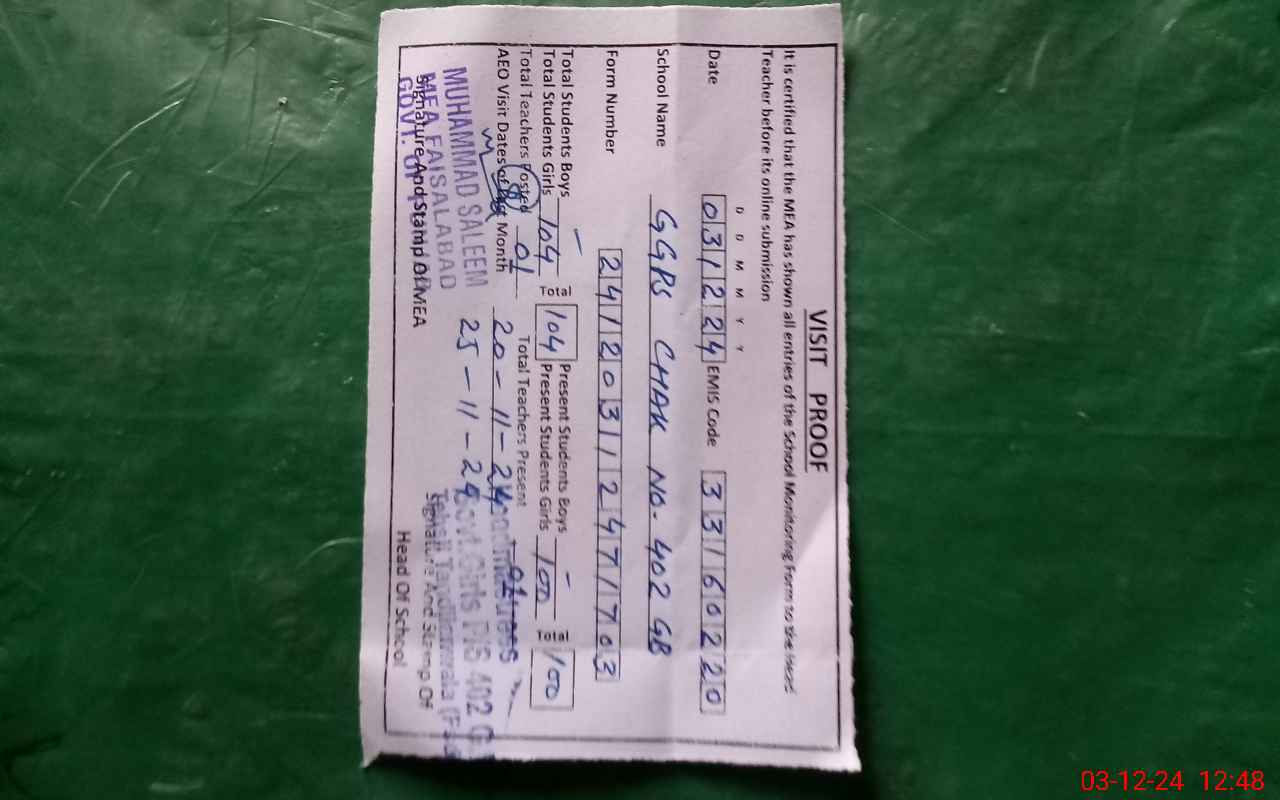 VISIT PROOF
It is certified that the MEA has shown all entries of the School Monitoring Form to the Head
Teacher before its online submission
D D M M Y Y
Date 031224 EMIS Code 33160220
School Name GGPS CHAK NO. 402 GB
Form Number 241203112471703
Total Students Boys — Present Students Boys —
Total Students Girls 104 Total 104 Present Students Girls 100 Total 100
Total Teachers Posted 01 Total Teachers Present 01
AEO Visit Dates of Past Month 20-11-24
25-11-24
MUHAMMAD SALEEM
MEA FAISALABAD
GOVT. OF
Signature And Stamp Of MEA
Headmistress
Govt. Girls P/S 402 G.
Tehsil Tandlianwala
Signature And Stamp Of
Head Of School
03-12-24 12:48